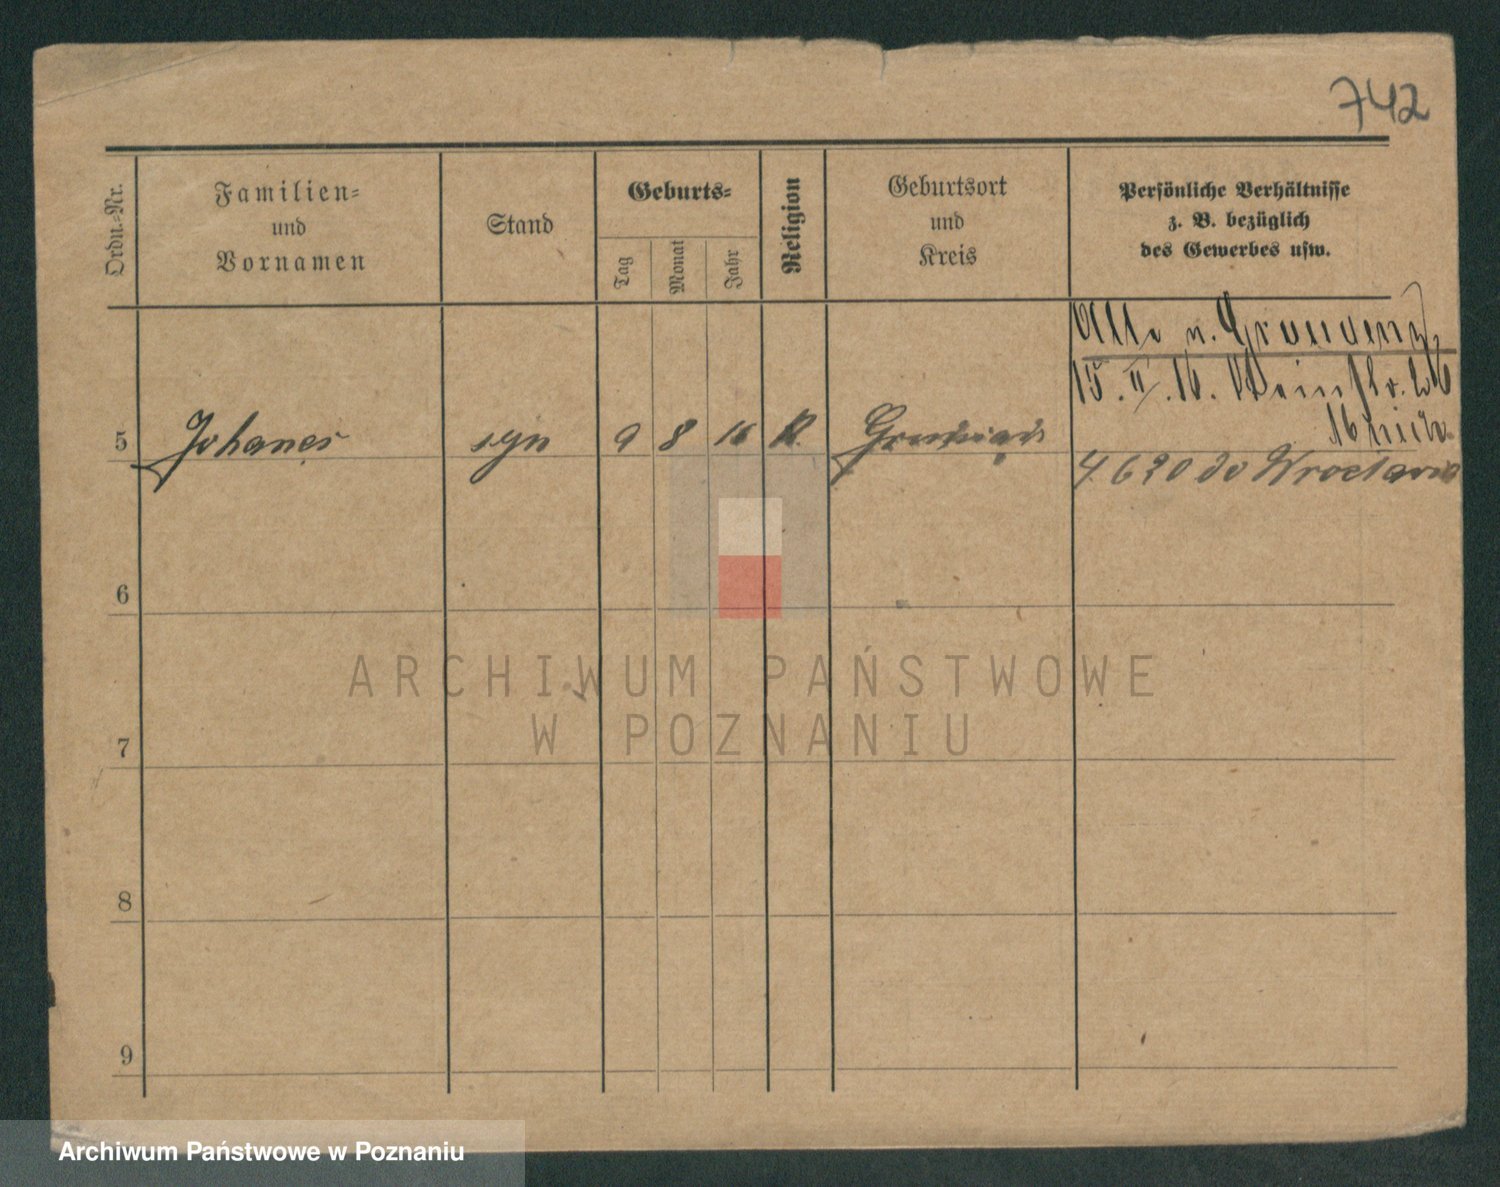 742
Ordn.-Nr.
Familien-
und
Vornamen
Stand
Geburts-
Tag
Monat
Jahr
Religion
Geburtsort
und
Kreis
Persönliche Verhältnisse
z. B. bezüglich
des Gewerbes usw.
Alle v. Graudenz
15. II. 16.
5 Johanes syn 9 8 16 K.
4 6 20 do Wrocławia
6
ARCHIWUM PAŃSTWOWE
W POZNANIU
7
8
9
Archiwum Państwowe w Poznaniu